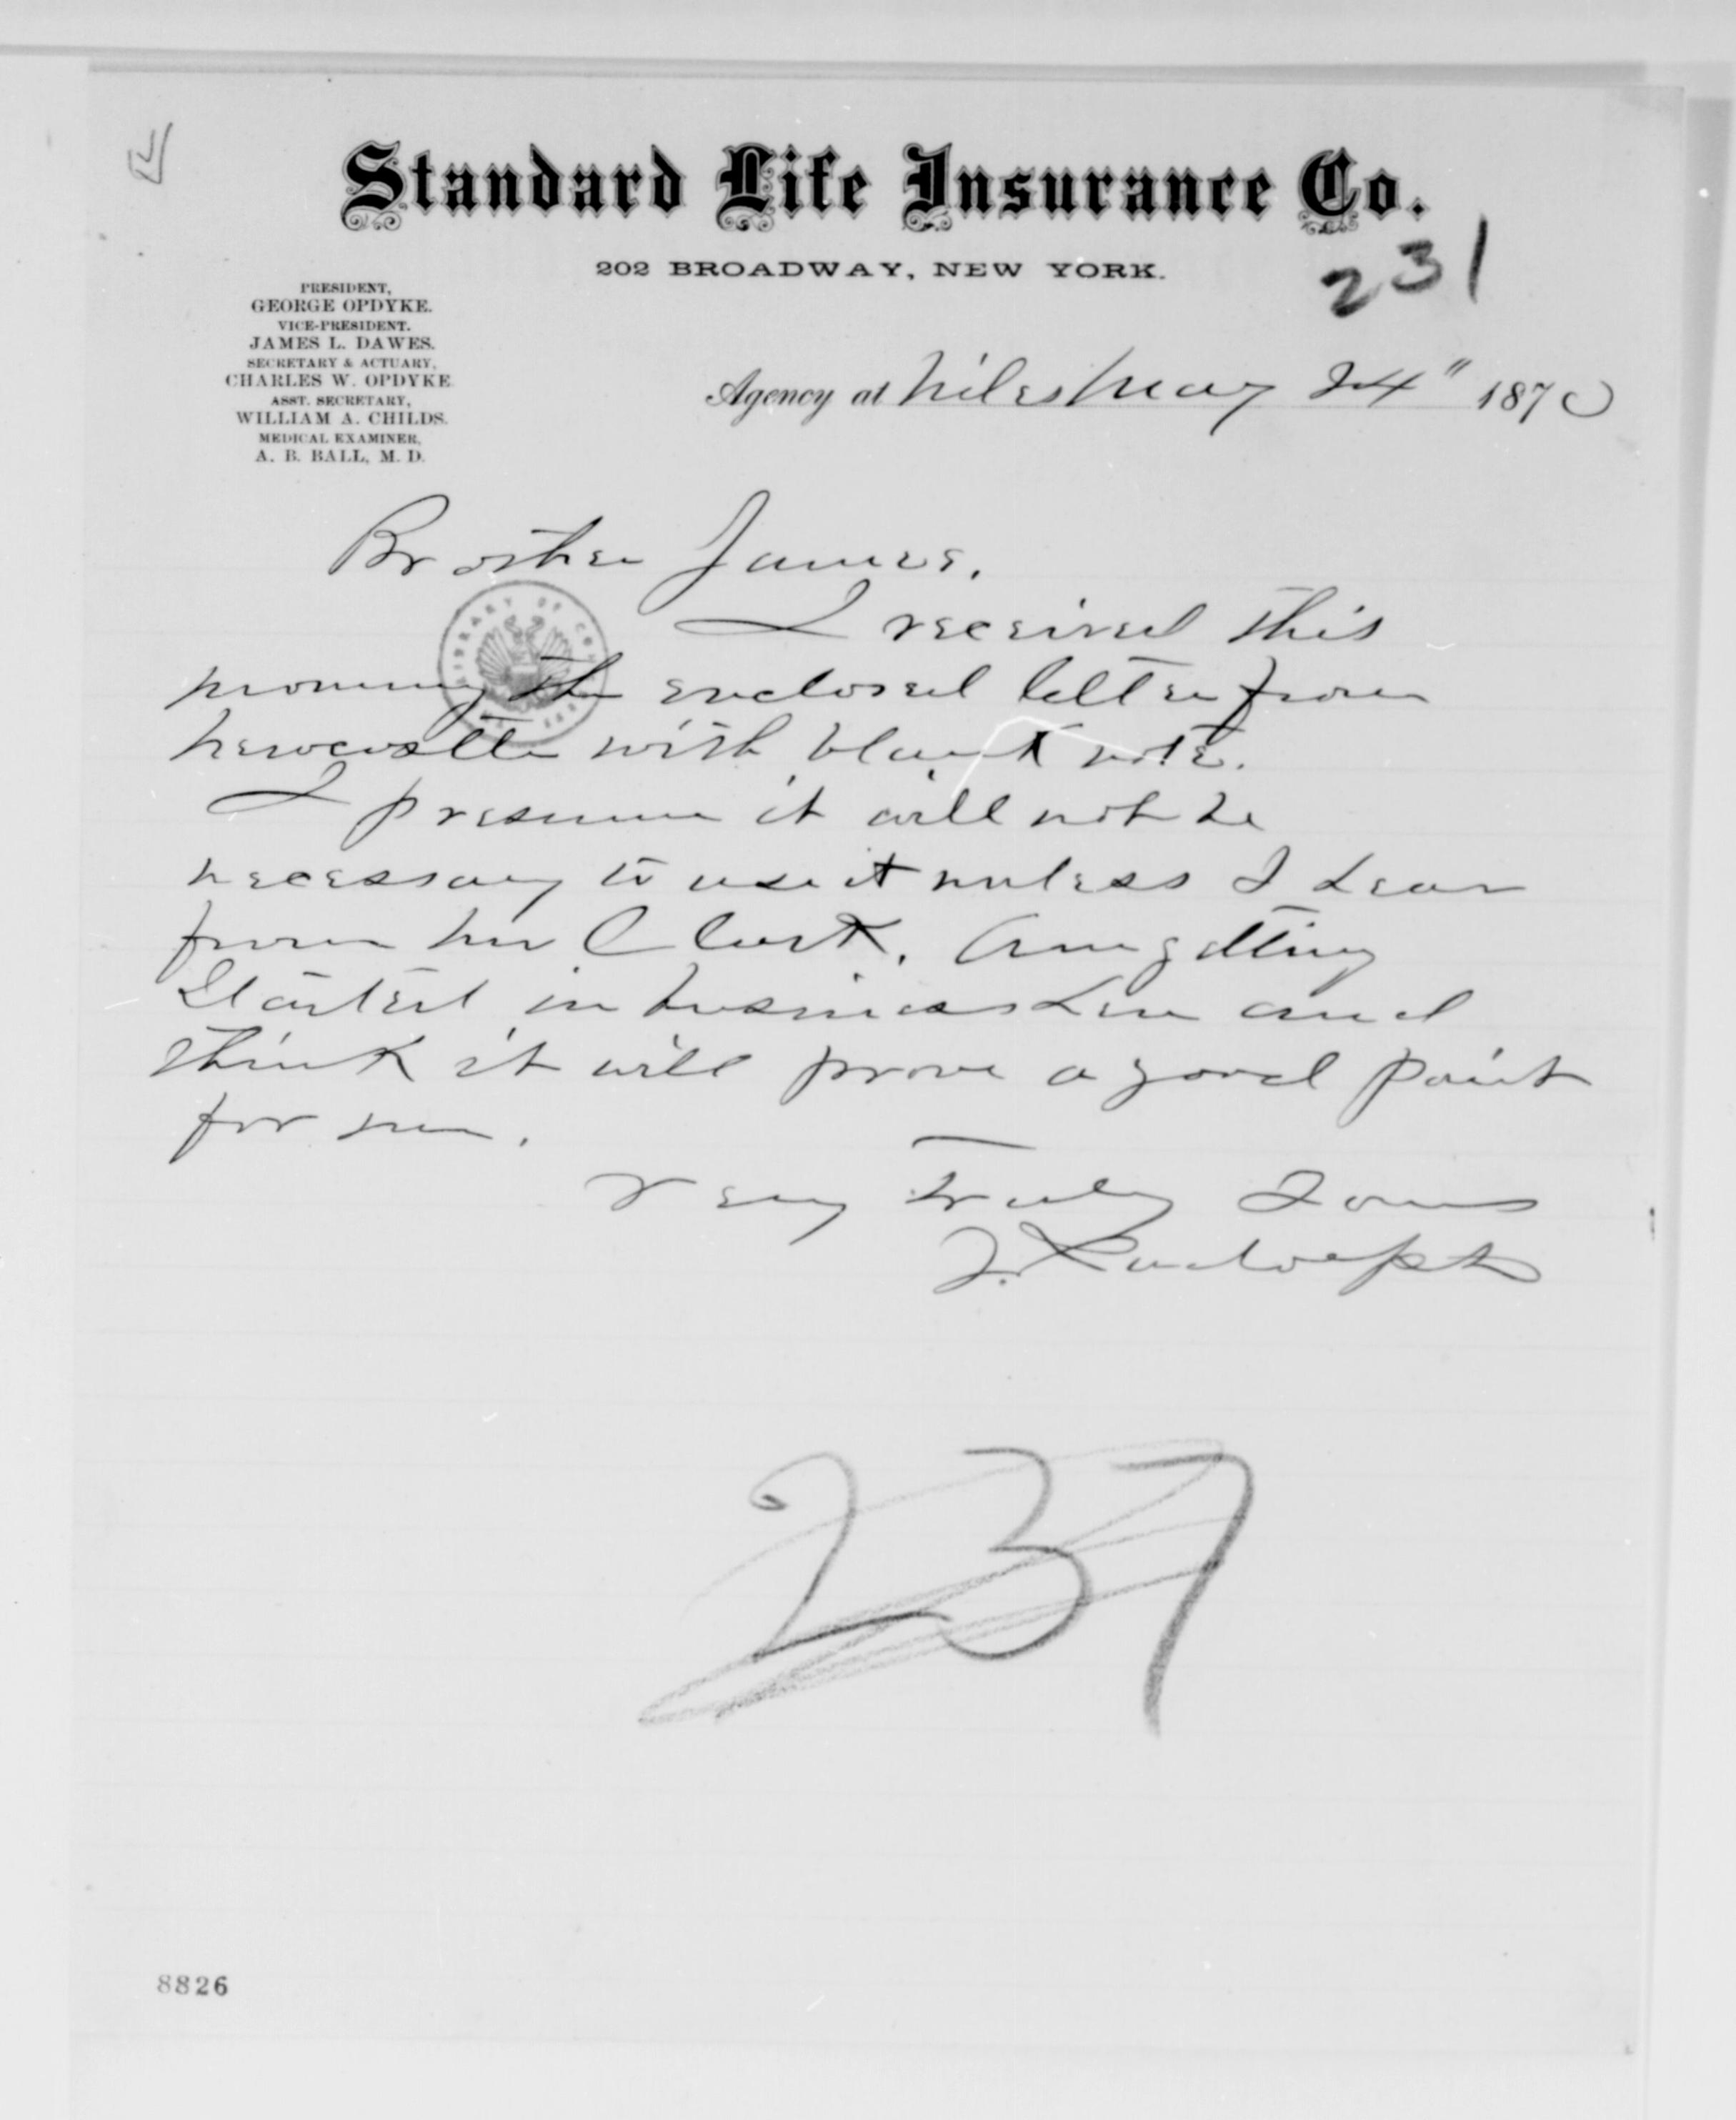 Standard Life Insurance Co.
202 BROADWAY, NEW YORK.
231
PRESIDENT,
GEORGE OPDYKE.
VICE-PRESIDENT.
JAMES L. DAWES.
SECRETARY & ACTUARY,
CHARLES W. OPDYKE
ASST. SECRETARY,
WILLIAM A. CHILDS.
MEDICAL EXAMINER,
A. B. BALL, M. D.
Agency at Niles May 24" 1870
Brother James.
I received this
morning the enclosed letter from
Newcastle with blank note.
I presume it will not be
necessary to use it unless I hear
from Mr Clark. Am getting
Started in business here and
think it will prove a good point
for me.
Very Truly Yours
J. Rudolph
LIBRARY OF CON
237
8826